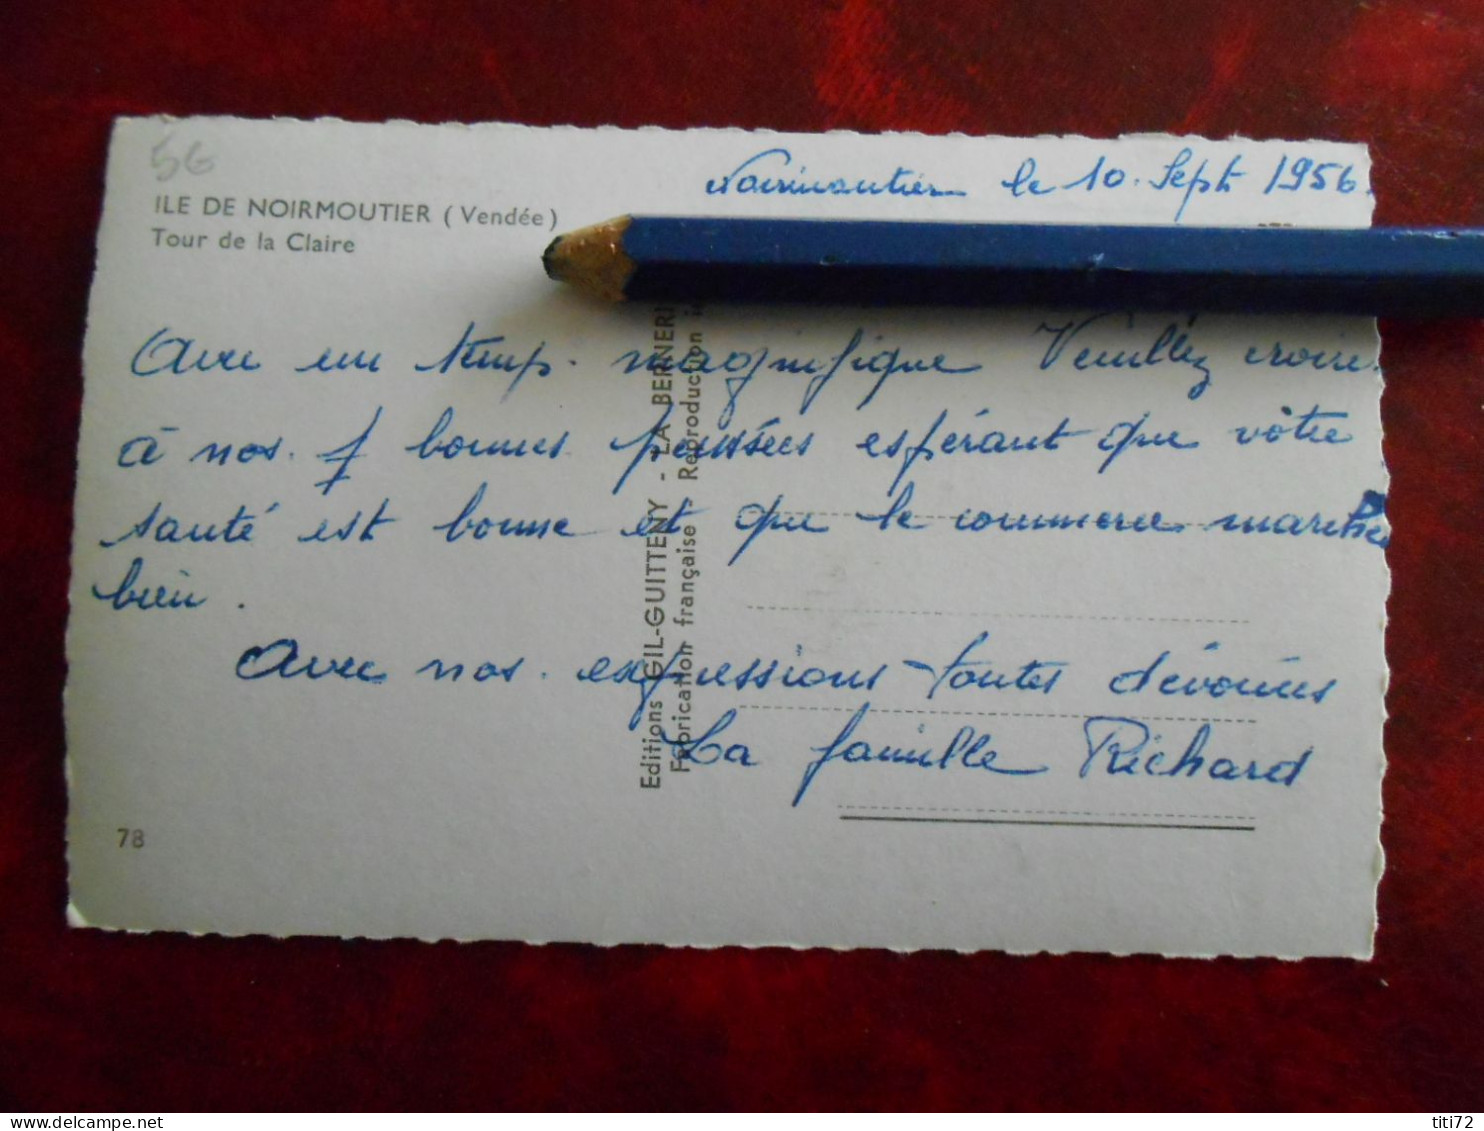 56
ILE DE NOIRMOUTIER (Vendée)
Tour de la Claire
Noirmoutier le 10. Sept 1956.
Avec un temp. magnifique Veuillez croire
à nos. bonnes pensées espérant que vôtre
santé est bonne et que le commerce marche
bien.
Avec nos. expressions toutes dévouées
La famille Richard
Editions GIL-GUITTENY - LA BERNERI
Fabrication française Reproduction i
78
titi72